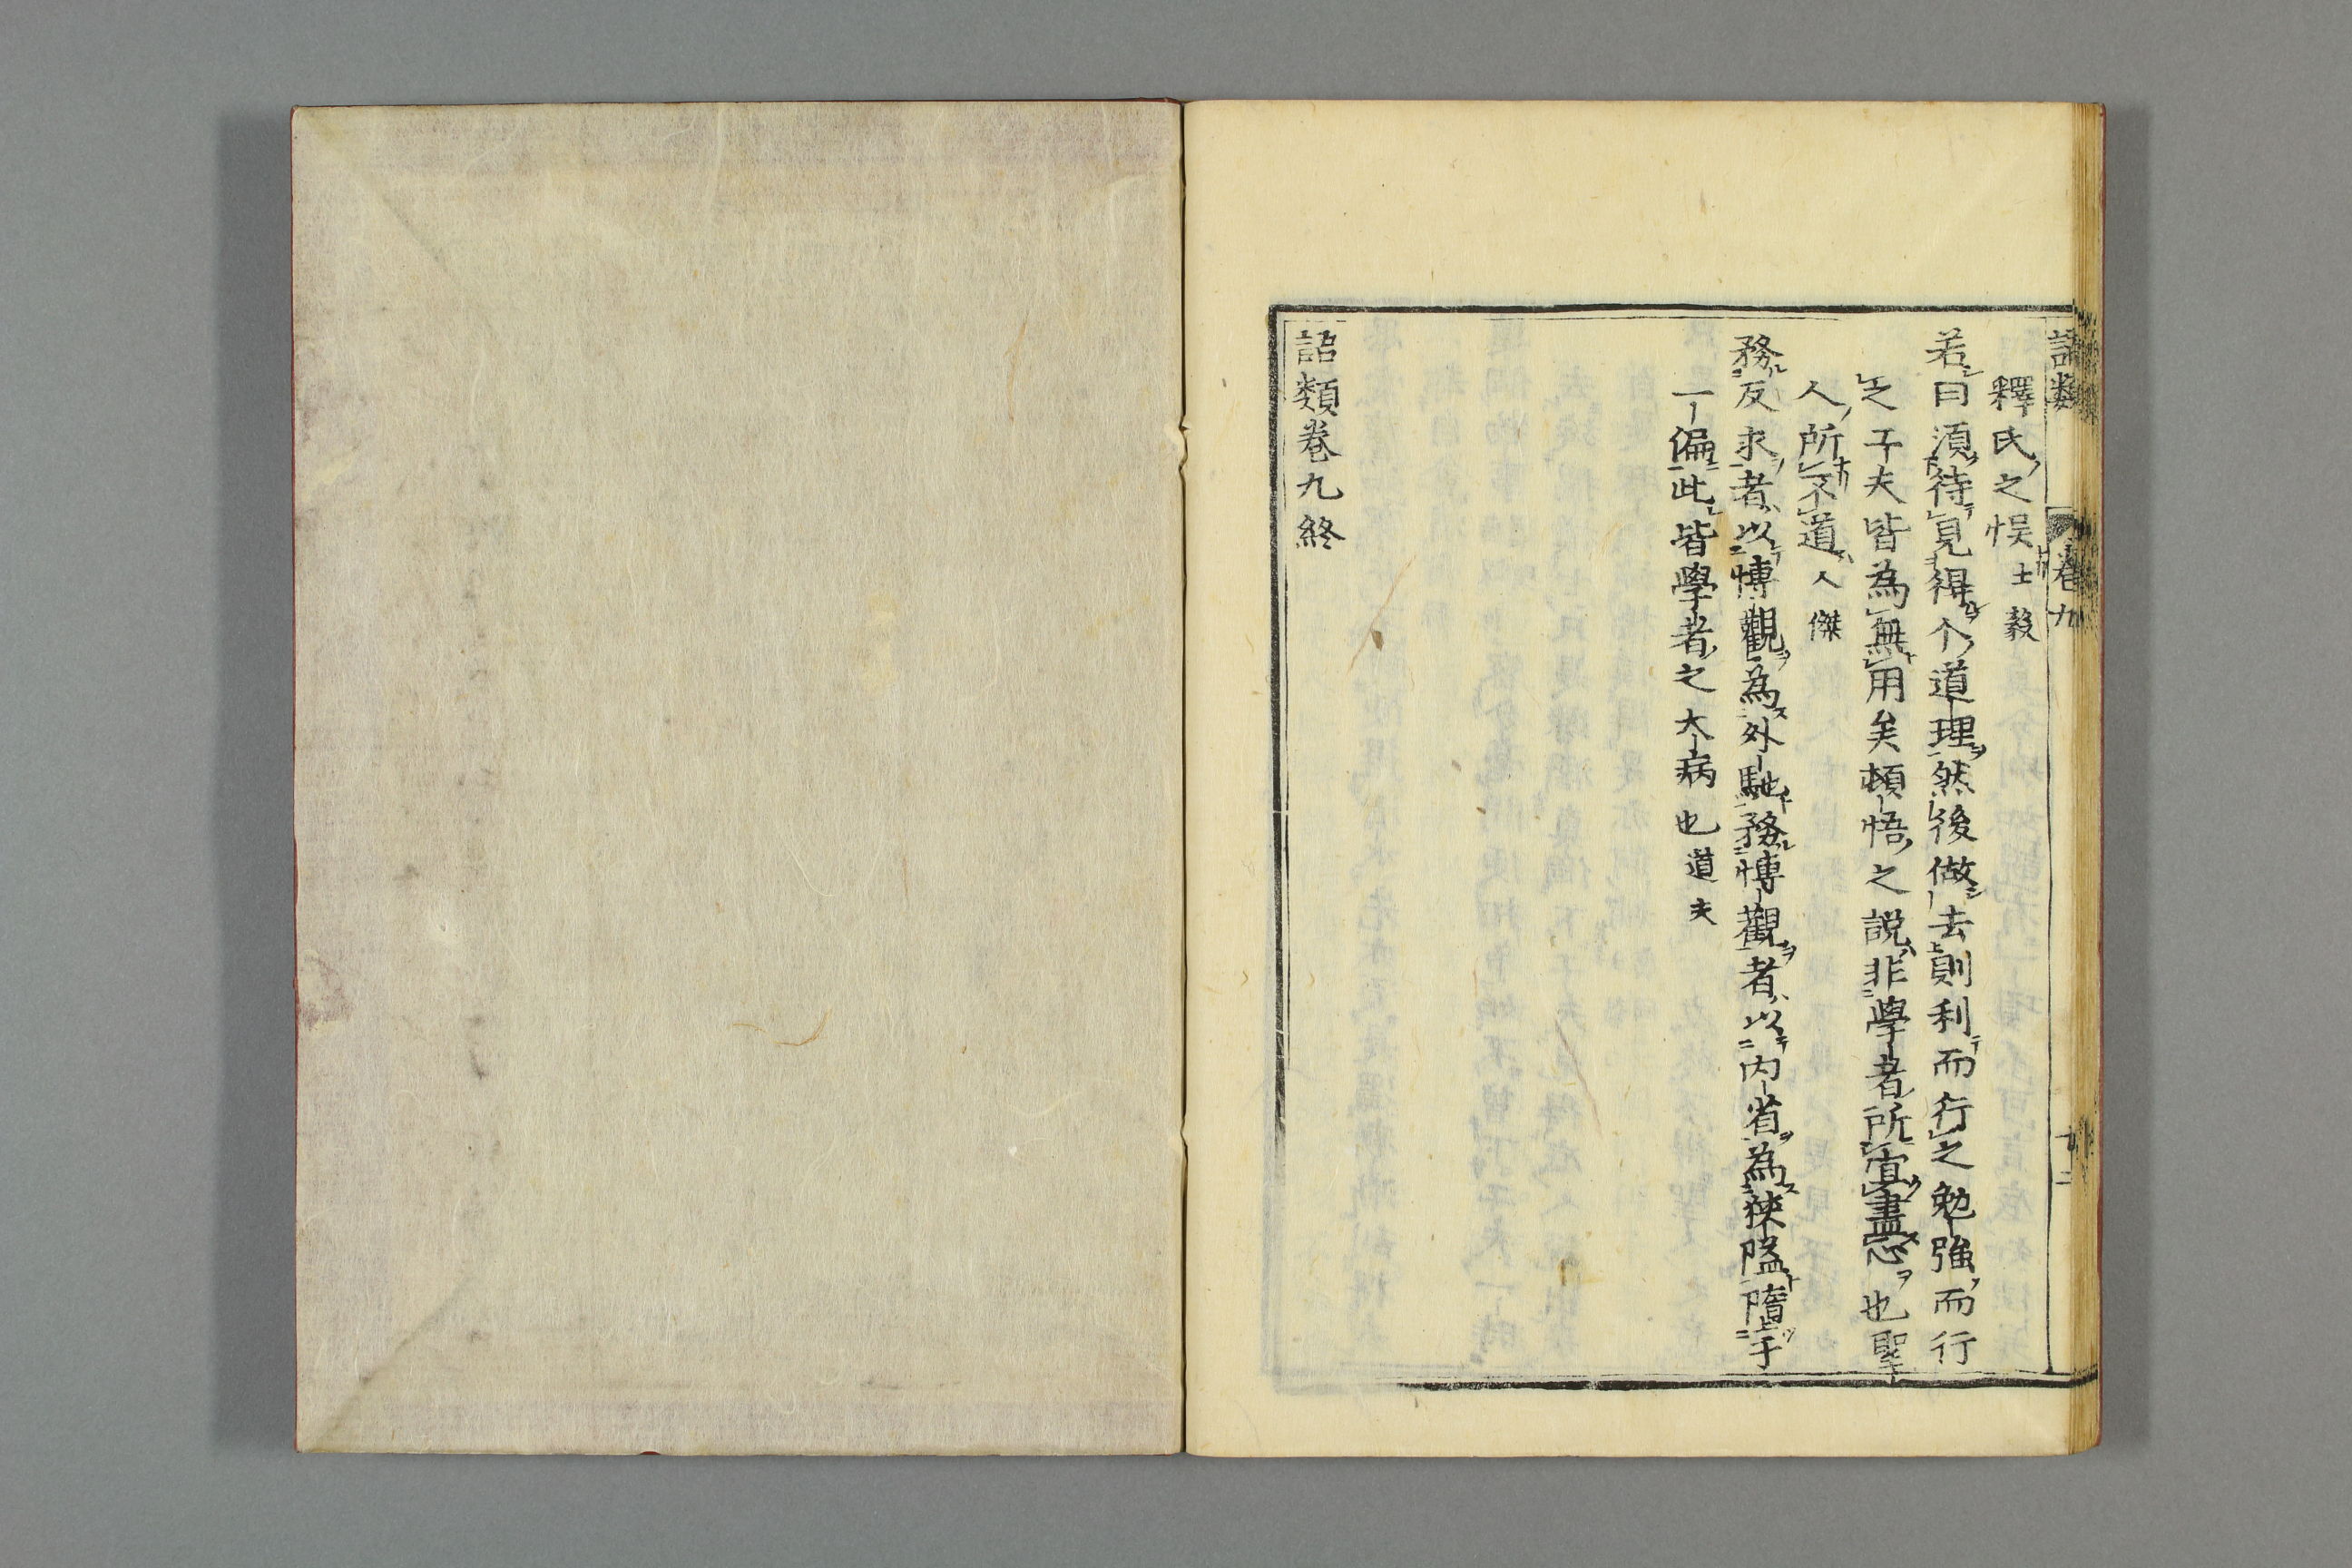 語類 卷九 廿二
釋氏之悞士毅
若曰須待見得个道理然後做去則利而行之勉強而行
之子夫皆為無用矣頓悟之說非學者所宜盡心也聖
人所不道人傑
務反求者以愽觀為外馳務愽觀者以内省為狹隘墮于
一偏此皆學者之大病也道夫
語類卷九終